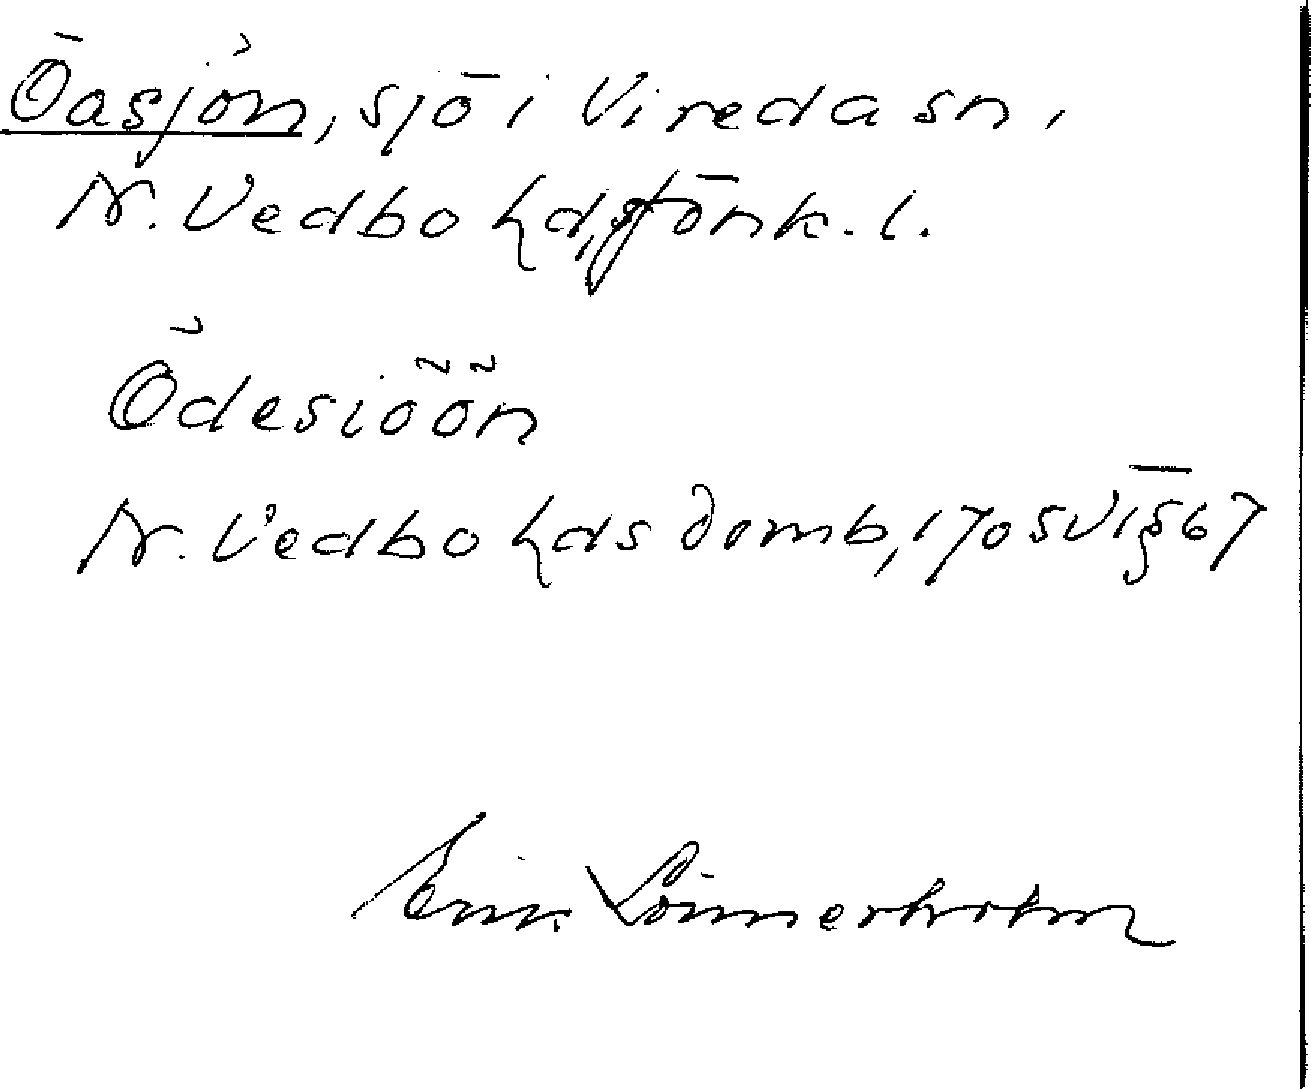 Öasjön, sjö i Vireda sn,
N. Vedbo hd, Jönk. l.
Ödesiöön
N. Vedbo hds domb, 1705 VI § 67
Einar Lönnerholm